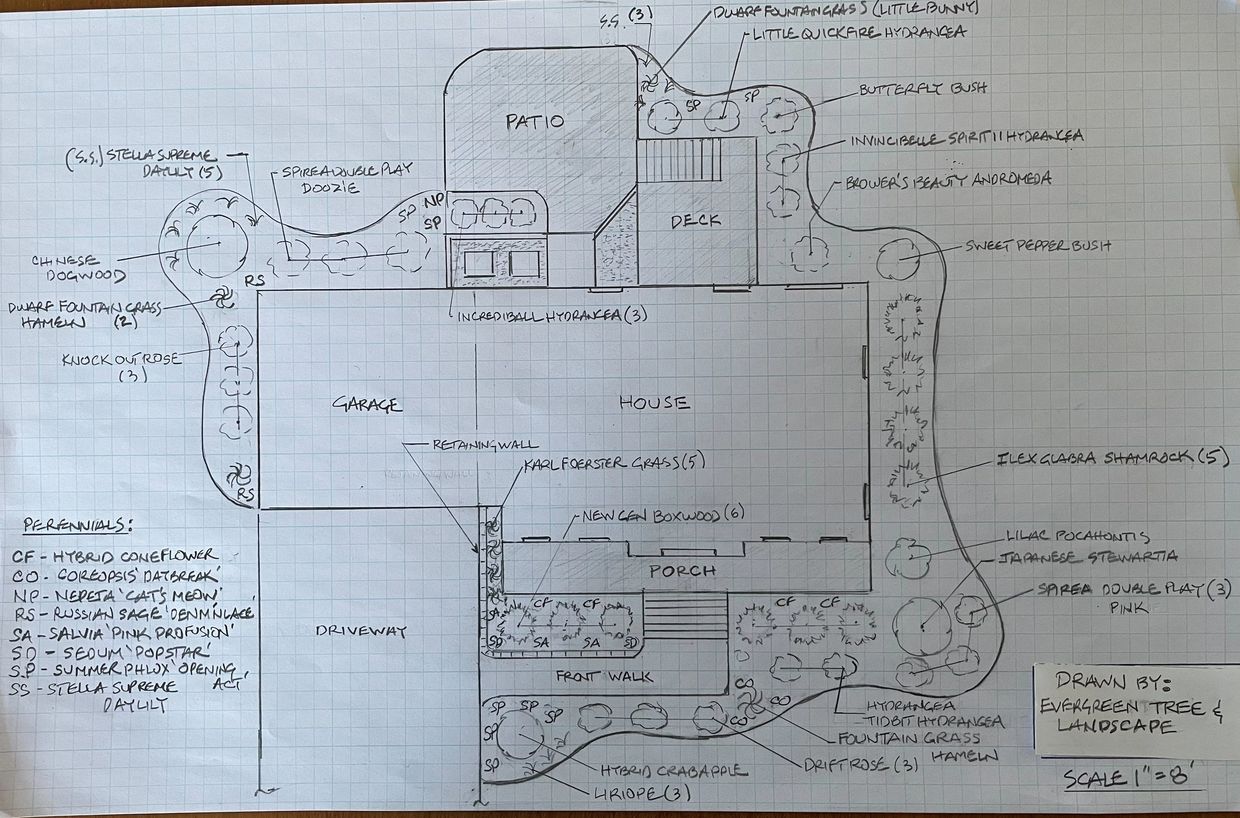 S.S. (3)
DWARF FOUNTAIN GRASS (LITTLE BUNNY)
LITTLE QUICKFIRE HYDRANGEA
SP
SP
BUTTERFLY BUSH
PATIO
INVINCIBELLE SPIRIT II HYDRANGEA
(S.S.) STELLA SUPREME
DAYLILY (5)
SPIREA DOUBLE PLAY
DOOZIE
BROWER'S BEAUTY ANDROMEDA
SP
NP
SP
DECK
SWEET PEPPER BUSH
CHINESE
DOGWOOD
RS
DWARF FOUNTAIN GRASS
HAMELN (2)
INCREDIBALL HYDRANGEA (3)
KNOCK OUT ROSE
(3)
GARAGE
HOUSE
RETAINING WALL
KARL FOERSTER GRASS (5)
ILEX GLABRA SHAMROCK (5)
RS
NEW GEN BOXWOOD (6)
PERENNIALS:
CF - HYBRID CONEFLOWER
CO - COREOPSIS 'DAYBREAK'
NP - NEPETA 'CAT'S MEOW'
RS - RUSSIAN SAGE 'DENIM N LACE
SA - SALVIA 'PINK PROFUSION'
SD - SEDUM 'POPSTAR'
SP - SUMMER PHLOX 'OPENING
ACT'
SS - STELLA SUPREME
DAYLILY
LILAC POCAHONTIS
JAPANESE STEWARTIA
PORCH
SPIREA DOUBLE PLAY (3)
PINK
CF CF
CF CF
SA
DRIVEWAY
SD SA SA SD
FRONT WALK
CO
CO
CO
SP SP SP
SP
SP
HYDRANGEA
TIDBIT HYDRANGEA
FOUNTAIN GRASS
HAMELN
DRIFT ROSE (3)
HYBRID CRABAPPLE
LIRIOPE (3)
DRAWN BY:
EVERGREEN TREE &
LANDSCAPE
SCALE 1" = 8'